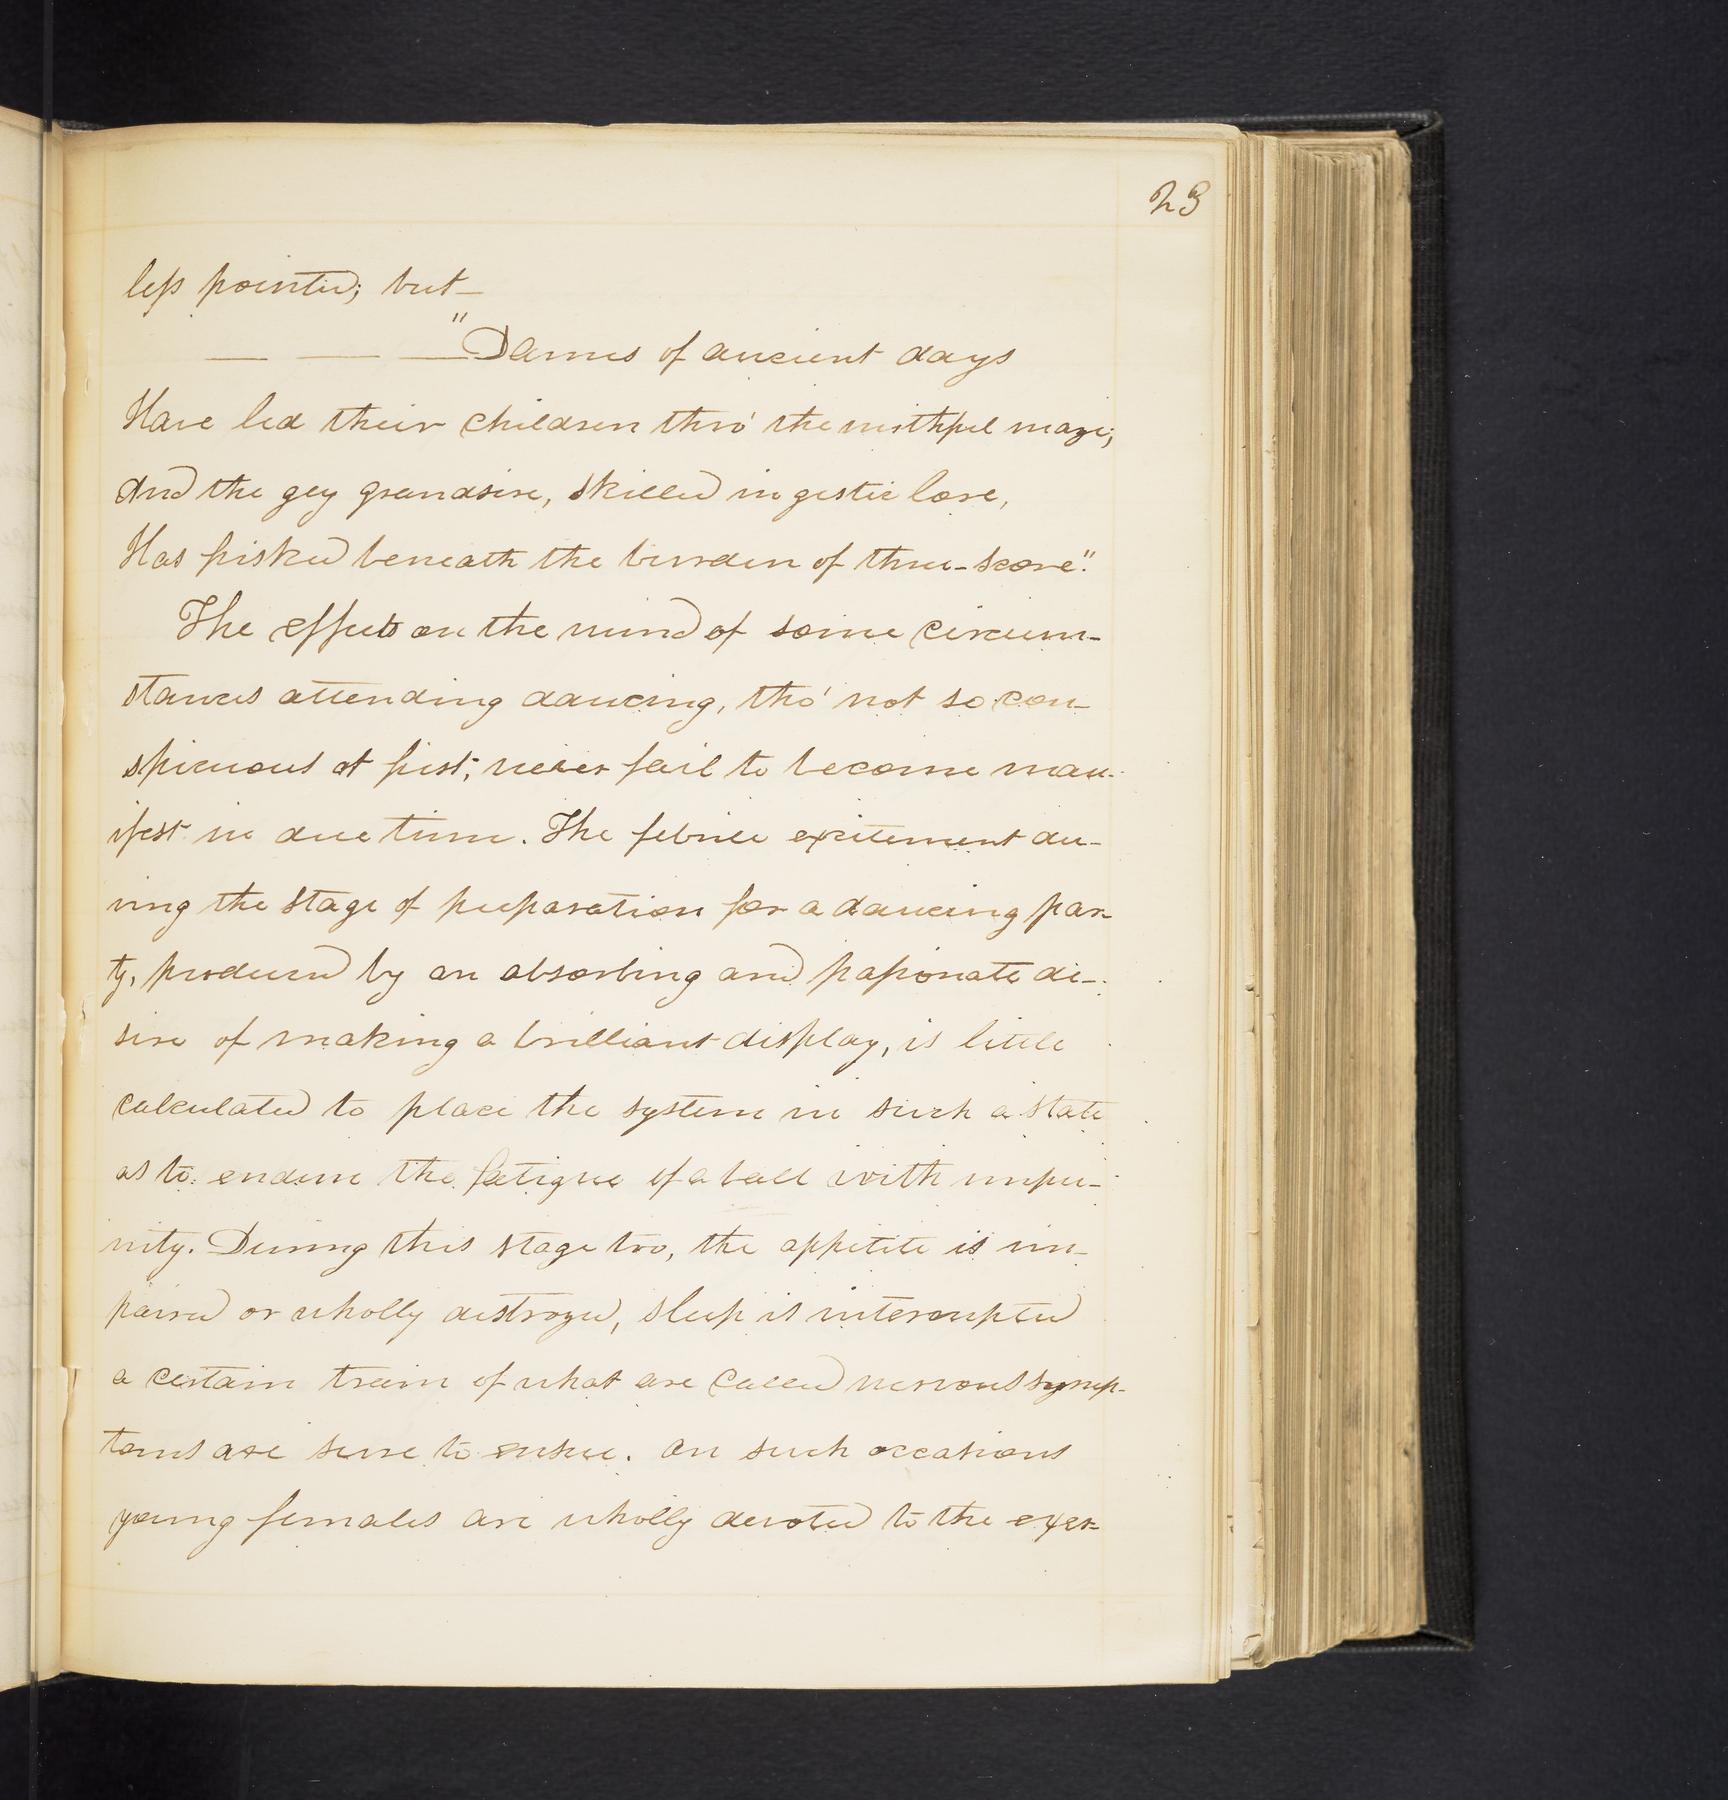 23
less pointed; but—
— — — "Dames of ancient days
Have led their children thro' the mirthful maze;
And the gey grandsire, skilled in gestic lore,
Has frisked beneath the burden of three-score."
The effects on the mind of some circum-
stances attending dancing, tho' not so con-
spicuous at first, never fail to become man-
ifest in due time. The febrile excitement du-
ring the stage of preparation for a dancing par-
ty, produced by an absorbing and passionate de-
sire of making a brilliant display, is little
calculated to place the system in such a state
as to endure the fatigue of a ball with impu-
nity. During this stage too, the appetite is im-
paired or wholly destroyed, sleep is interrupted
a certain train of what are called nervous symp-
toms are sure to ensue. On such occasions
young females are wholly devoted to the exer-